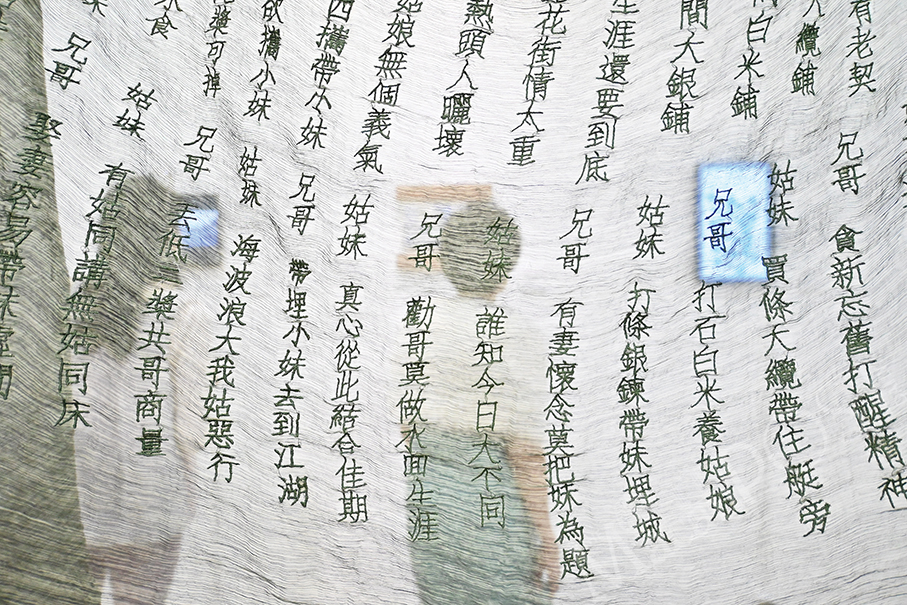 有老契
纜鋪
白米鋪
間大銀鋪
生涯還要到底
花街情太重
熱頭人曬壞
姑娘無個義氣
攜帶小妹
欲攜小妹
槳可掉
食
兄哥 貪新忘舊打醒精神
姑妹 買條大纜帶住艇旁
兄哥 打石白米養姑娘
姑妹 打條銀鍊帶妹埋城
兄哥 有妻懷念莫把妹為題
姑妹 誰知今日大不同
兄哥 勸哥莫做水面生涯
姑妹 真心從此結合佳期
兄哥 帶埋小妹去到江湖
姑妹 海波浪大我姑惡行
兄哥 去低槳共哥商量
姑妹 有姑同講無姑同床
兄哥 娶妻容易帶妹